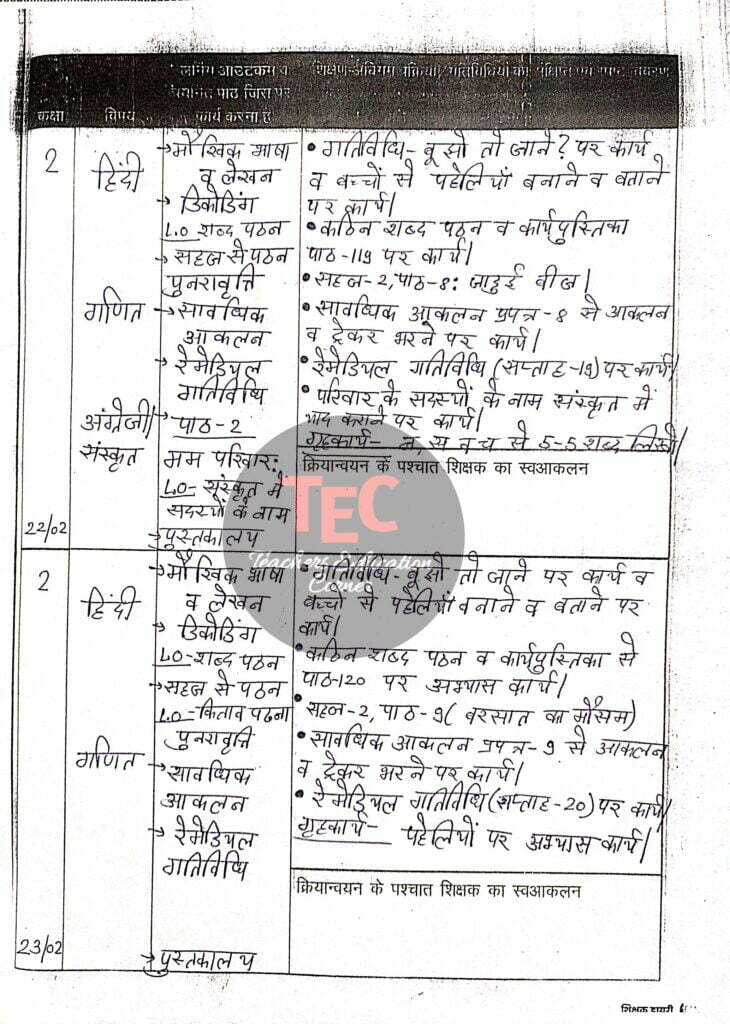 लर्निंग आउटकम व
चयनित पाठ जिस पर
कार्य करना है
शिक्षण-अधिगम प्रक्रिया/गतिविधियों का
कक्षा
विषय
2
हिंदी
→मौखिक भाषा
व लेखन
→ डिकोडिंग
L.O शब्द पठन
→ सहज से पठन
पुनरावृत्ति
• गतिविधि- बूझो तो जाने? पर कार्य
व बच्चों से पहेलियाँ बनाने व बताने
पर कार्य।
• कठिन शब्द पठन व कार्यपुस्तिका
पाठ-119 पर कार्य।
• सहज-2, पाठ-8: जादुई बीज।
गणित
→ सावधिक
आकलन
→ रेमेडियल
गतिविधि
• सावधिक आकलन प्रपत्र-8 से आकलन
व ट्रेकर भरने पर कार्य।
• रेमेडियल गतिविधि (सप्ताह-19) पर कार्य।
अंग्रेजी/
संस्कृत
→ पाठ-2
मम परिवार:
L.O- संस्कृत में
सदस्यों के नाम
→पुस्तकालय
• परिवार के सदस्यों के नाम संस्कृत में
याद कराने पर कार्य।
गृहकार्य- न, स व च से 5-5 शब्द लिखो।
क्रियान्वयन के पश्चात शिक्षक का स्वआकलन
22/02
TEC
Teachers Education
Corner
2
हिंदी
→मौखिक भाषा
व लेखन
→ डिकोडिंग
L.O-शब्द पठन
→सहज से पठन
L.O-किताब पढना
पुनरावृत्ति
• गतिविधि- बूझो तो जाने पर कार्य व
बच्चो से पहेलियाँ बनाने व बताने पर
कार्य।
• कठिन शब्द पठन व कार्यपुस्तिका से
पाठ-120 पर अभ्यास कार्य।
• सहज-2, पाठ-9( बरसात का मौसम)
गणित
→ सावधिक
आकलन
→ रेमेडियल
गतिविधि
• सावधिक आकलन प्रपत्र-9 से आकलन
व ट्रेकर भरने पर कार्य।
• रेमेडियल गतिविधि (सप्ताह-20) पर कार्य।
गृहकार्य- पहेलियों पर अभ्यास कार्य।
क्रियान्वयन के पश्चात शिक्षक का स्वआकलन
23/02
→पुस्तकालय
शिक्षक डायरी